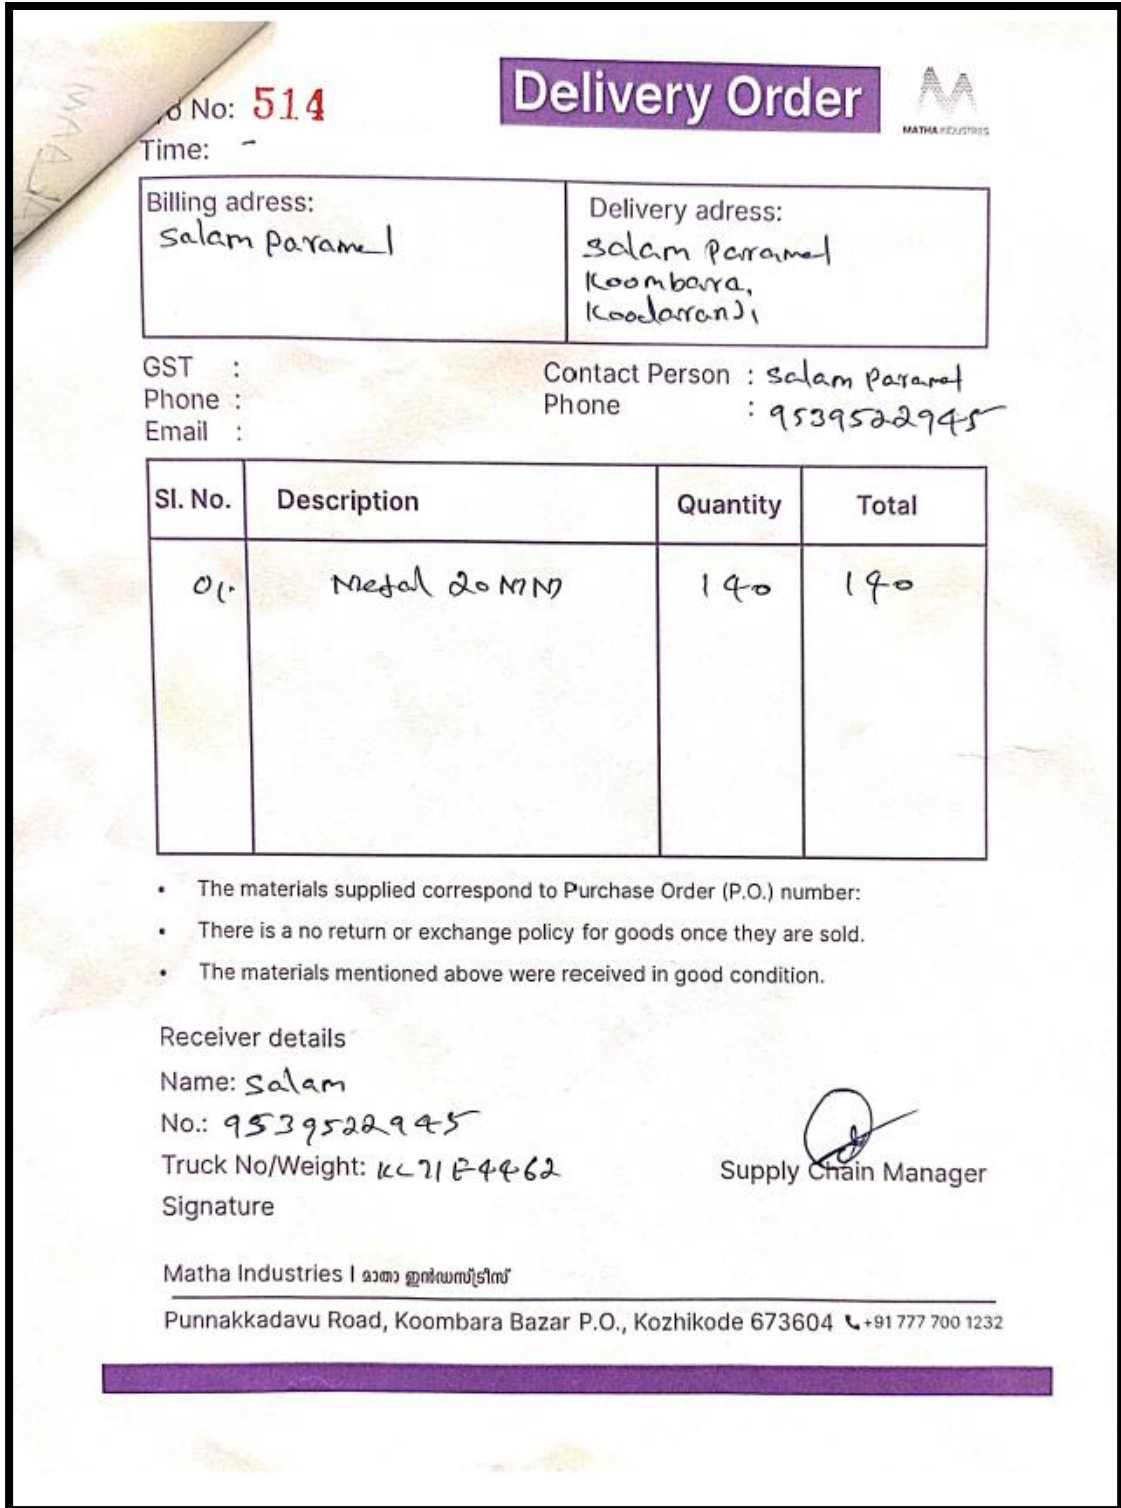 No: 514
Delivery Order
MATHA INDUSTRIES
Time: -
Billing adress:
Salam Paramel
Delivery adress:
Salam Paramel
Koombara,
Koodaranji
GST :
Phone :
Email :
Contact Person : Salam Paramel
Phone : 9539522945
Sl. No. Description Quantity Total
01. Metal 20 MM 140 140
• The materials supplied correspond to Purchase Order (P.O.) number:
• There is a no return or exchange policy for goods once they are sold.
• The materials mentioned above were received in good condition.
Receiver details
Name: Salam
No.: 9539522945
Truck No/Weight: KL71E4462
Signature
Supply Chain Manager
Matha Industries I മാതാ ഇൻഡസ്ട്രീസ്
Punnakkadavu Road, Koombara Bazar P.O., Kozhikode 673604 +91 777 700 1232